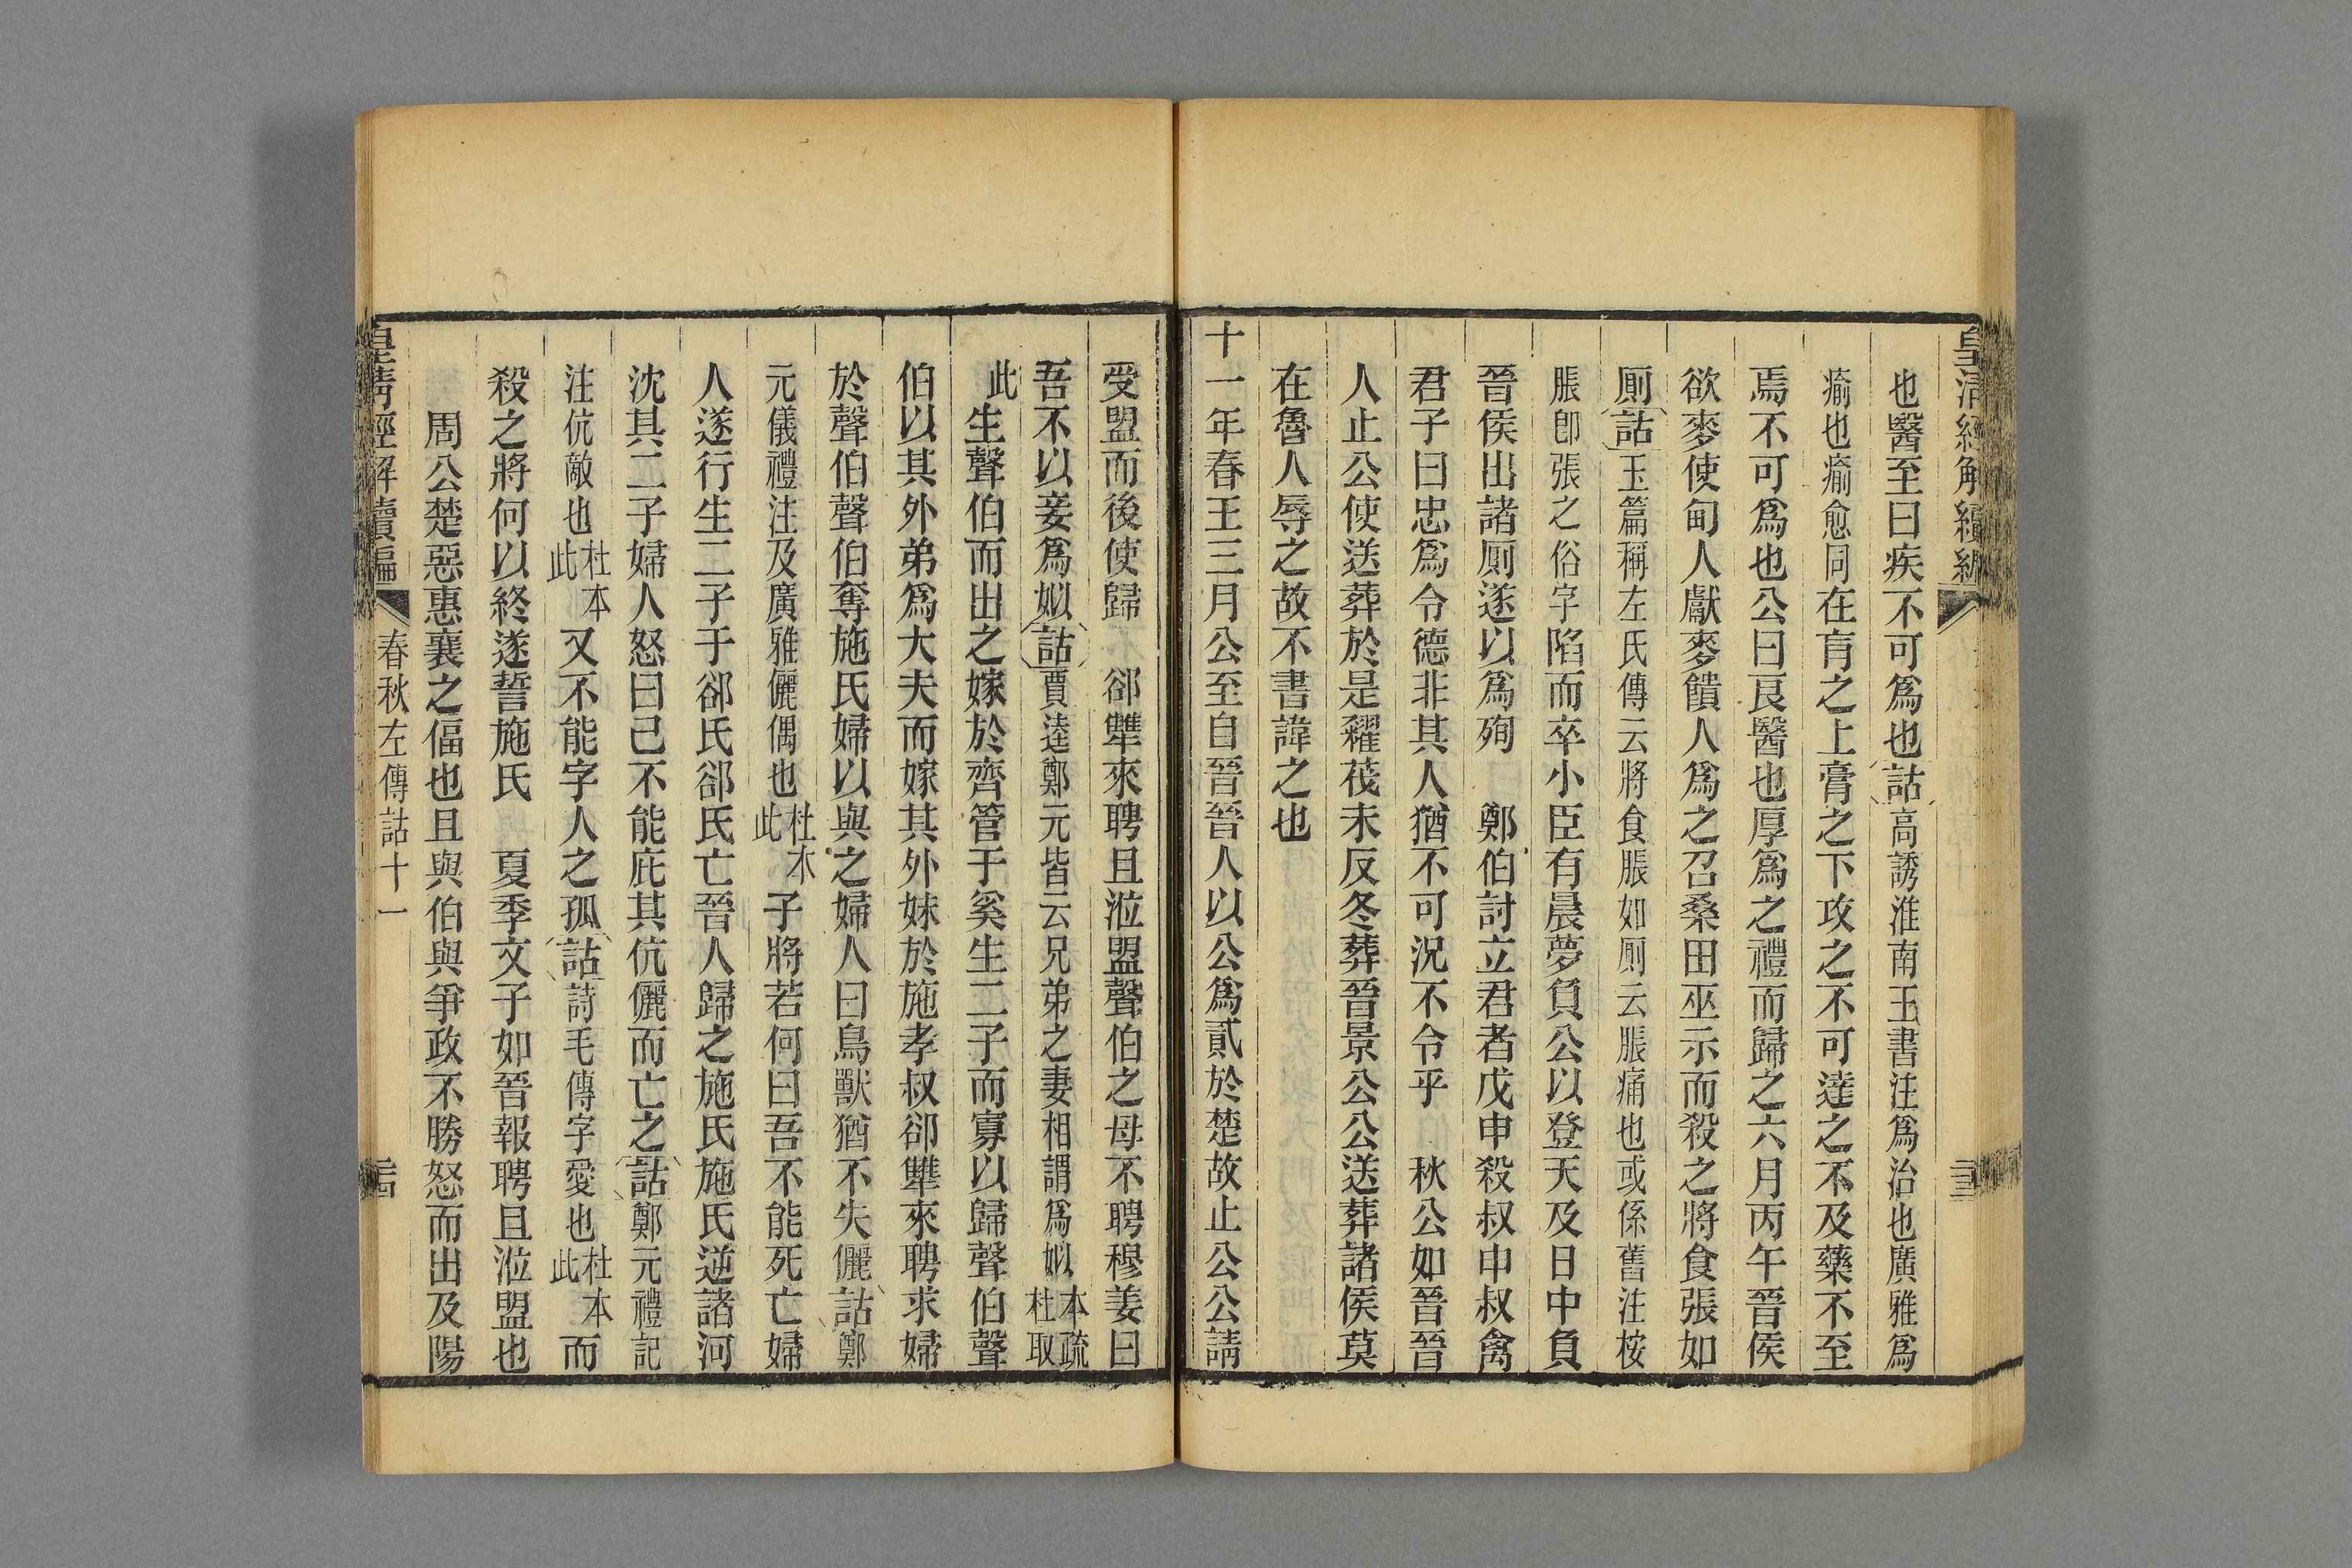 皇清經解續編
三三
也醫至曰疾不可爲也詁高誘淮南王書注爲治也廣雅爲
瘉也瘉愈同在肓之上膏之下攻之不可達之不及藥不至
焉不可爲也公曰良醫也厚爲之禮而歸之六月丙午晉侯
欲麥使甸人獻麥饋人爲之召桑田巫示而殺之將食張如
厠詁玉篇稱左氏傳云將食脹如厠云脹痛也或係舊注桉
脹卽張之俗字陷而卒小臣有晨夢負公以登天及日中負
晉侯出諸厠遂以爲殉　鄭伯討立君者戊申殺叔申叔禽
君子曰忠爲令德非其人猶不可況不令乎　秋公如晉晉
人止公使送葬於是糴茷未反冬葬晉景公公送葬諸侯莫
在魯人辱之故不書諱之也
十一年春王三月公至自晉晉人以公爲貳於楚故止公公請
受盟而後使歸　郤犨來聘且涖盟聲伯之母不聘穆姜曰
吾不以妾爲姒詁賈逵鄭元皆云兄弟之妻相謂爲姒本疏杜取
此生聲伯而出之嫁於齊管于奚生二子而寡以歸聲伯聲
伯以其外弟爲大夫而嫁其外妹於施孝叔郤犨來聘求婦
於聲伯聲伯奪施氏婦以與之婦人曰鳥獸猶不失儷詁鄭
元儀禮注及廣雅儷偶也杜本此子將若何曰吾不能死亡婦
人遂行生二子于郤氏郤氏亡晉人歸之施氏施氏逆諸河
沈其二子婦人怒曰己不能庇其伉儷而亡之詁鄭元禮記
注伉敵也杜本此又不能字人之孤詁詩毛傳字愛也杜本此而
殺之將何以終遂誓施氏　夏季文子如晉報聘且涖盟也
周公楚惡惠襄之偪也且與伯與爭政不勝怒而出及陽
皇清經解續編
春秋左傳詁十一
三四